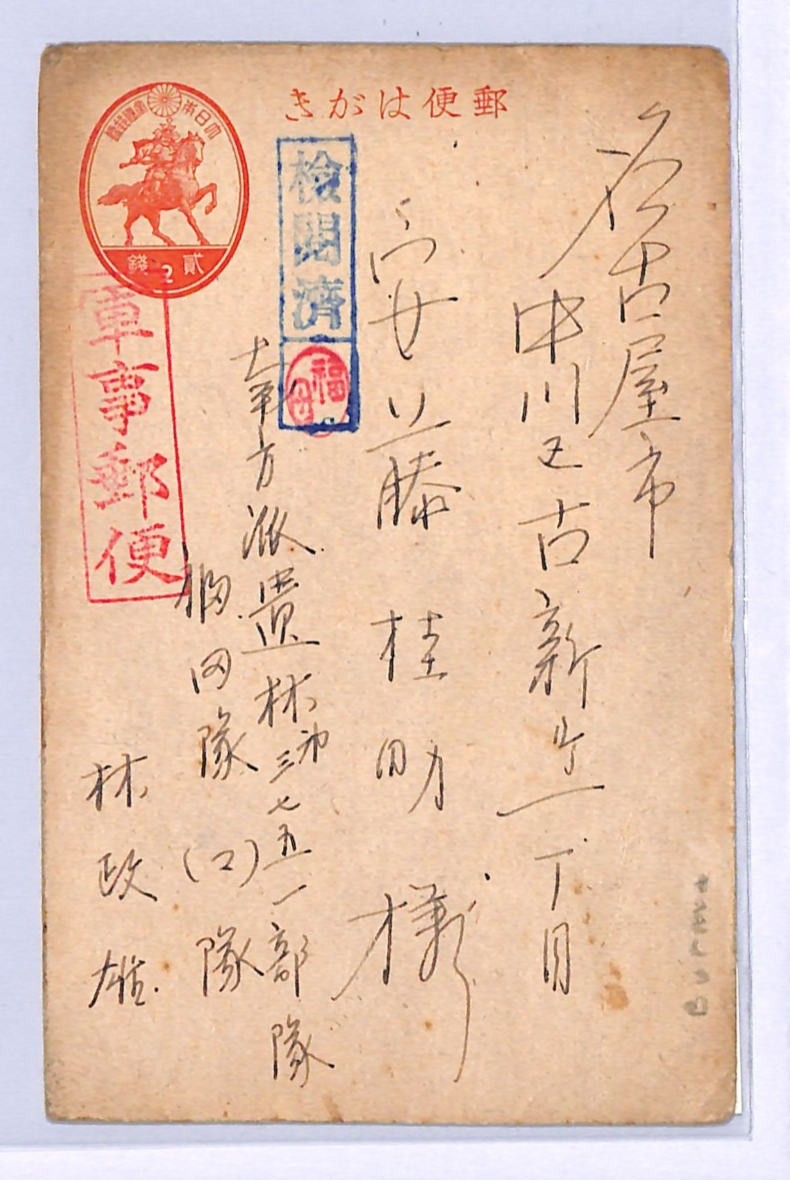 郵便はがき
大日本帝國郵便
貳錢
2
検閲済
福母
軍事郵便
名古屋市
中川区古新町一丁目
安藤桂助様
中方派遣林部三七五一部隊
岡隊(口)隊
林政雄